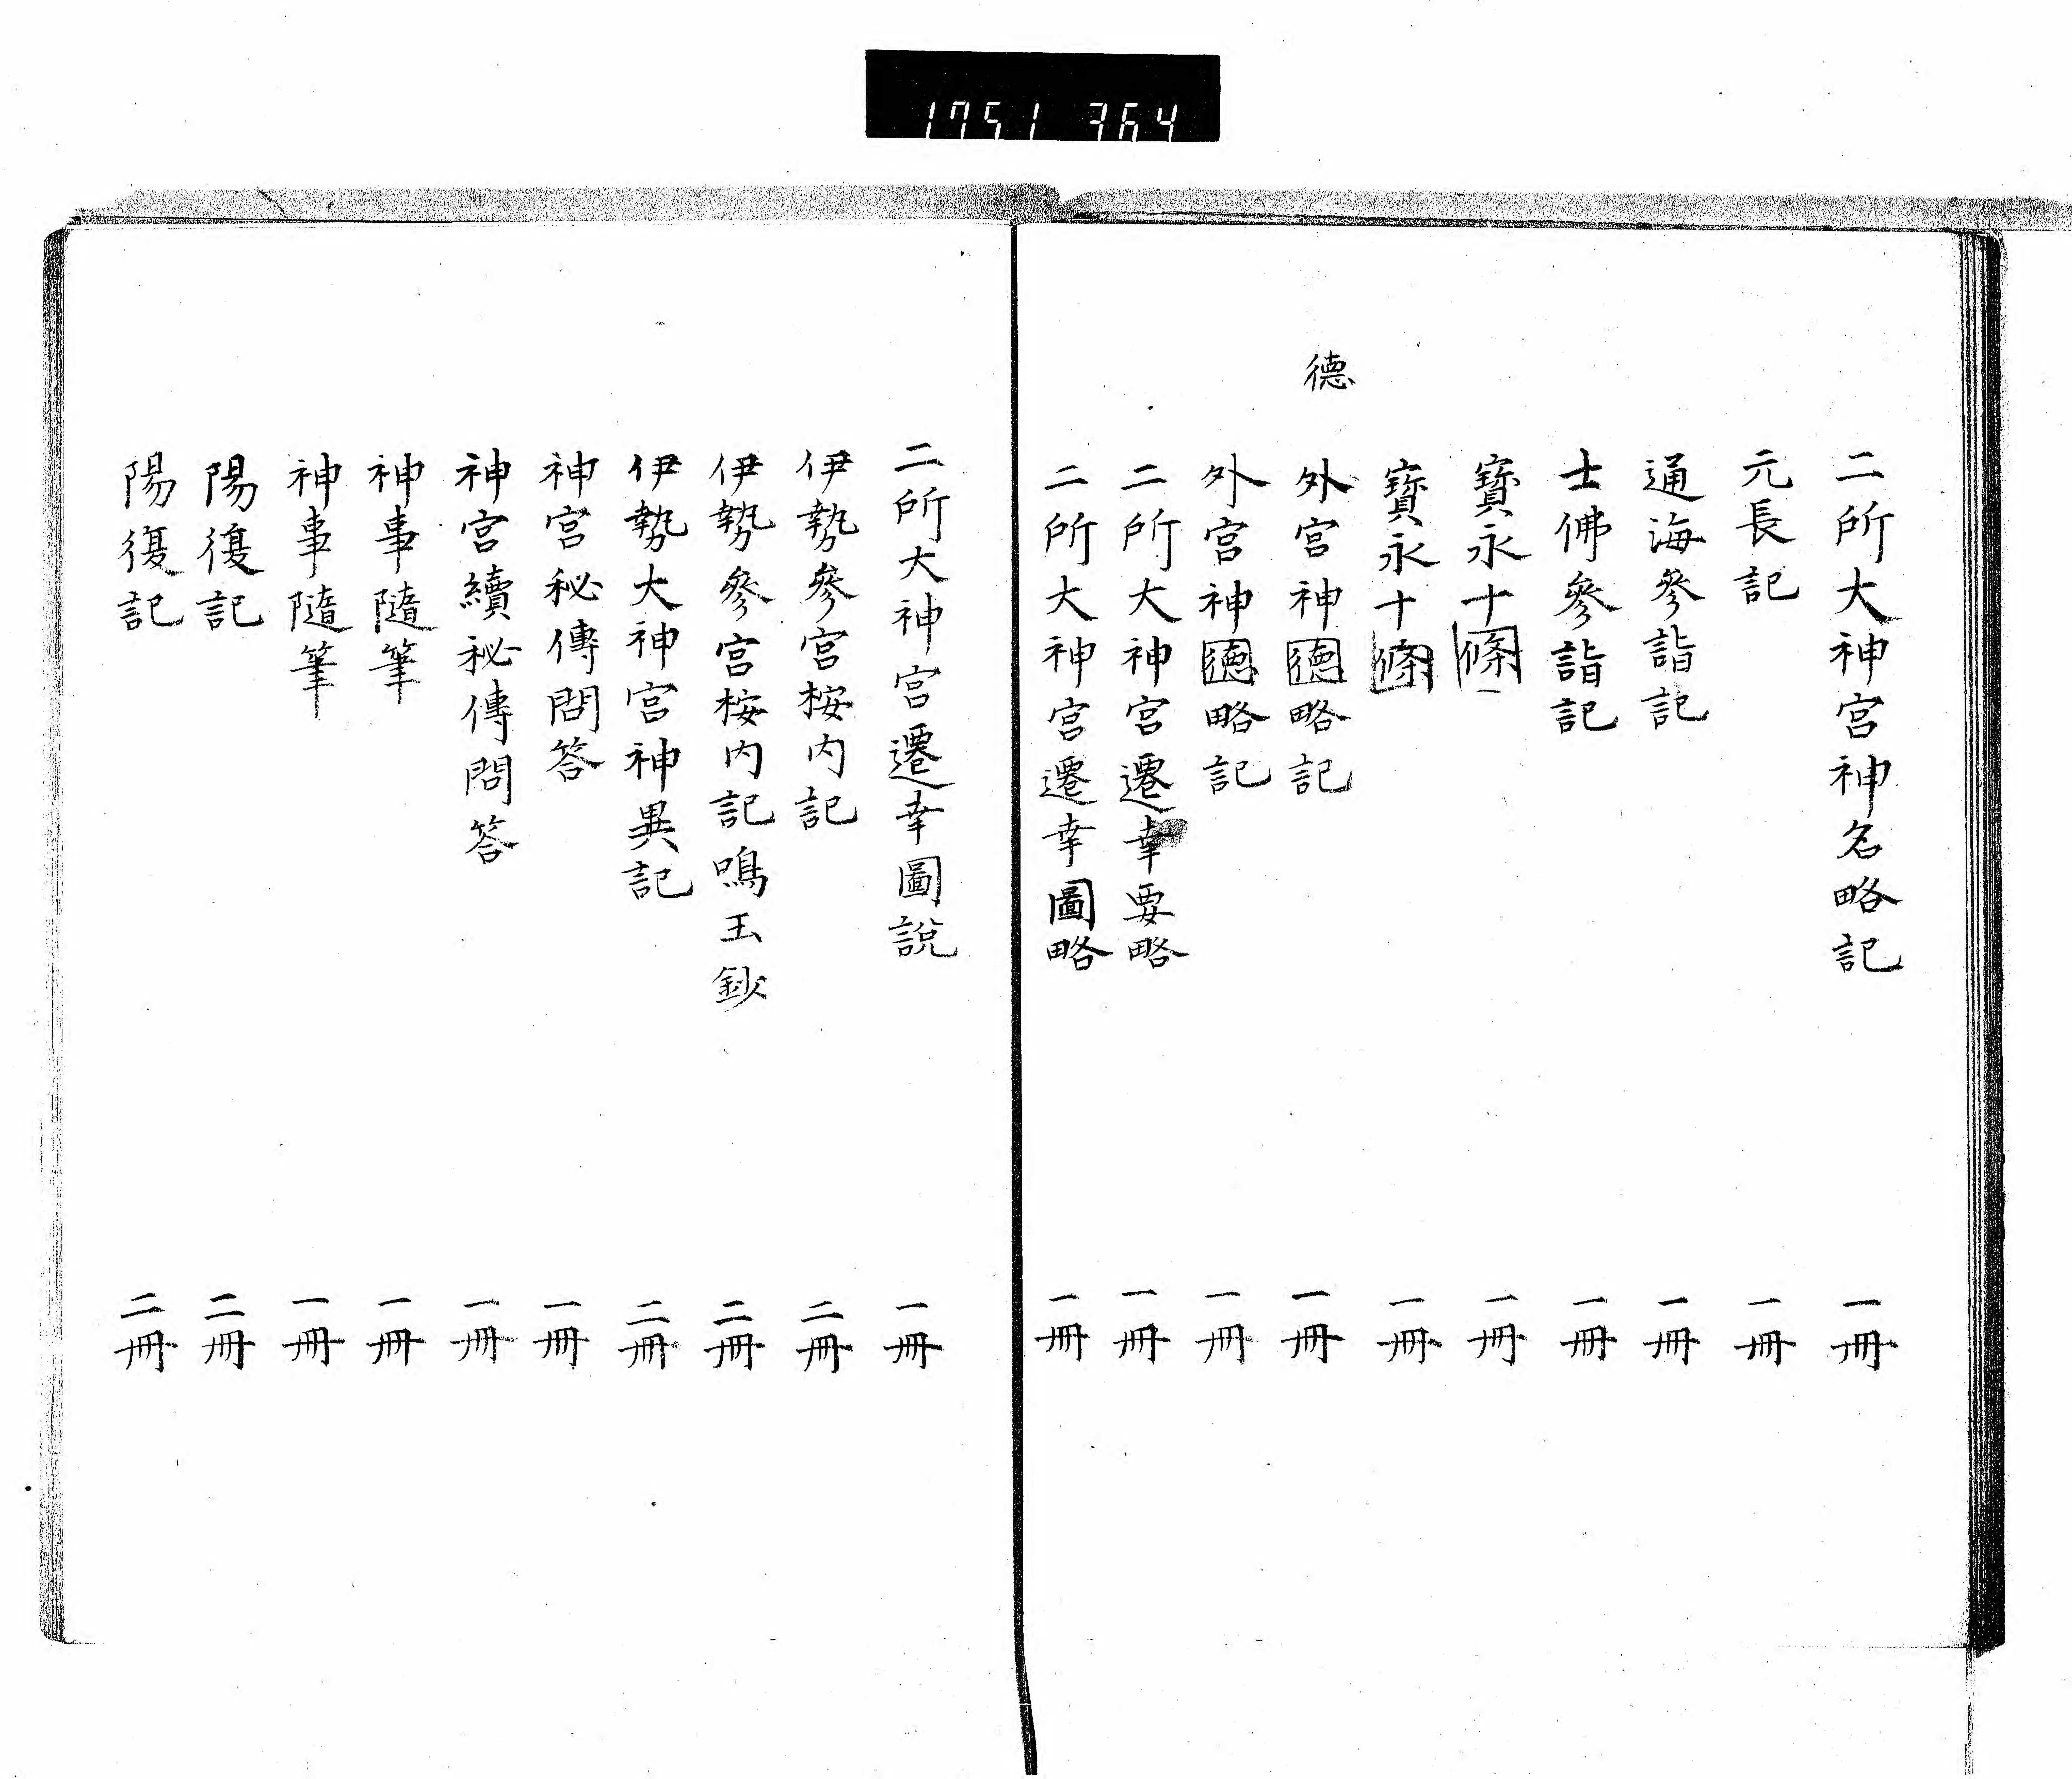 1751 764
二所大神宮神名略記 一冊
元長記 一冊
通海參詣記 一冊
士佛參詣記 一冊
寶永十條 一冊
寶永十條 一冊
德
外宮神德略記 一冊
外宮神德略記 一冊
二所大神宮遷幸要略 一冊
二所大神宮遷幸圖略 一冊
二所大神宮遷幸圖說 一冊
伊勢參宮桉内記 二冊
伊勢參宮桉内記鳴玉鈔 二冊
伊勢大神宮神異記 二冊
神宮秘傳問答 一冊
神宮續秘傳問答 一冊
神事隨筆 一冊
神事隨筆 一冊
陽復記 二冊
陽復記 二冊